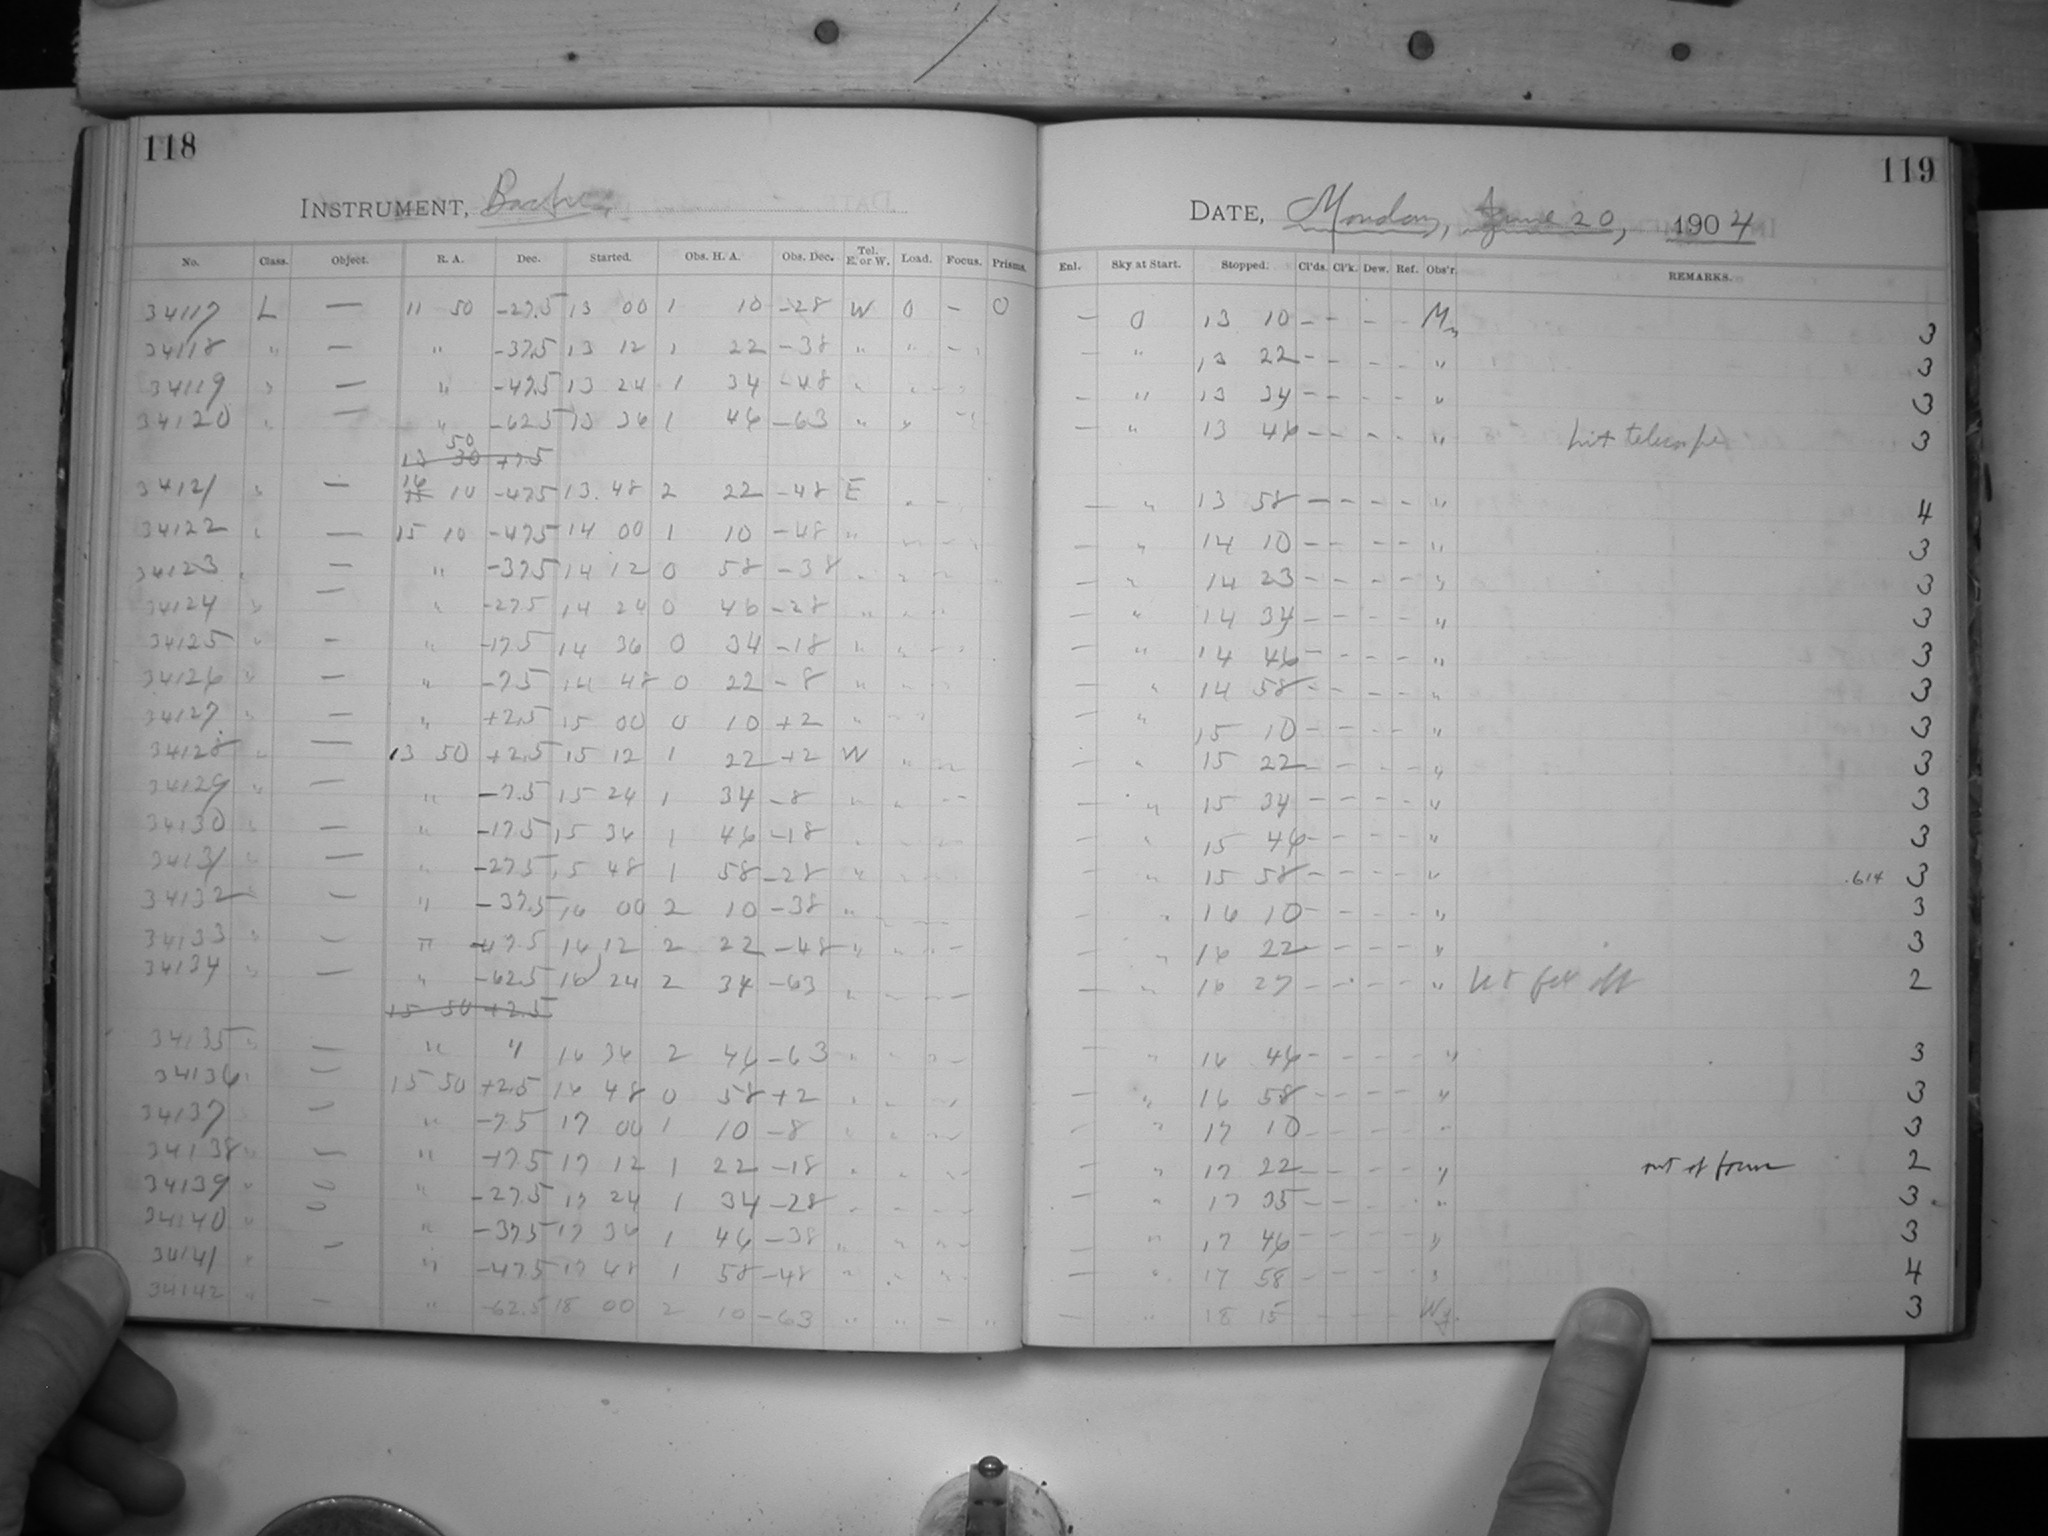 118
INSTRUMENT, Bache
No. Class. Object. R. A. Dec. Started. Obs. H. A. Obs. Dec. Tel. E. or W. Load. Focus. Prisms.
34117 L — 11 50 -27.5 13 00 1 10 -28 W 0 - 0
34118 " — " -37.5 13 12 1 22 -38 " " - "
34119 " — " -47.5 13 24 1 34 -48 " " - "
34120 " — " -62.5 13 36 1 46 -63 " " - "
13 30 50 +7.5
34121 " — 16 10 -47.5 13 48 2 22 -48 E " -
34122 " — 15 10 -47.5 14 00 1 10 -48 " " - "
34123 " — " -37.5 14 12 0 58 -38 " " -
34124 " — " -27.5 14 24 0 46 -28 " " -
34125 " — " -17.5 14 36 0 34 -18 " " -
34126 " — " -7.5 14 48 0 22 -8 " " -
34127 " — " +2.5 15 00 0 10 +2 " " -
34128 " — 13 50 +2.5 15 12 1 22 +2 W " -
34129 " — " -7.5 15 24 1 34 -8 " " -
34130 " — " -17.5 15 36 1 46 -18 " " -
34131 " — " -27.5 15 48 1 58 -28 " " -
34132 " — " -37.5 16 00 2 10 -38 " " -
34133 " — " -47.5 16 12 2 22 -48 " " -
34134 " — " -62.5 16 24 2 34 -63 " " -
15 50 +2.5
34135 " — " " 16 36 2 46 -63 " " -
34136 " — 15 50 +2.5 16 48 0 58 +2 " " -
34137 — " -7.5 17 00 1 10 -8 " " -
34138 " — " -17.5 17 12 1 22 -18 " " -
34139 " — " -27.5 17 24 1 34 -28 " " -
34140 " — " -37.5 17 36 1 46 -38 " " -
34141 " — " -47.5 17 48 1 58 -48 " " -
34142 " — " -62.5 18 00 2 10 -63 " " - "
119
DATE, Monday, June 20, 1904
Enl. Sky at Start. Stopped. Cl'ds. Cl'k. Dew. Ref. Obs'r. REMARKS.
— 0 13 10 - - - - M 3
— " 13 22 - - - - " 3
— " 13 34 - - - - " 3
— " 13 46 - - - - " hit telescope 3
— " 13 58 - - - - " 4
— " 14 10 - - - - " 3
— " 14 23 - - - - " 3
— " 14 34 - - - - " 3
— " 14 46 - - - - " 3
— " 14 58 - - - - " 3
— " 15 10 - - - - " 3
— " 15 22 - - - - " 3
— " 15 34 - - - - " 3
— " 15 46 - - - - " 3
— " 15 58 - - - - " .614 3
— " 16 10 - - - - " 3
— " 16 22 - - - - " 3
— " 16 27 - - - - " off 2
— " 16 46 - - - - " 3
— " 16 58 - - - - " 3
— " 17 10 - - - - " 3
— " 17 22 - - - - " out of focus 2
— " 17 35 - - - - " 3
— " 17 46 - - - - " 3
— " 17 58 - - - - " 4
— " 18 15 - - - - 3